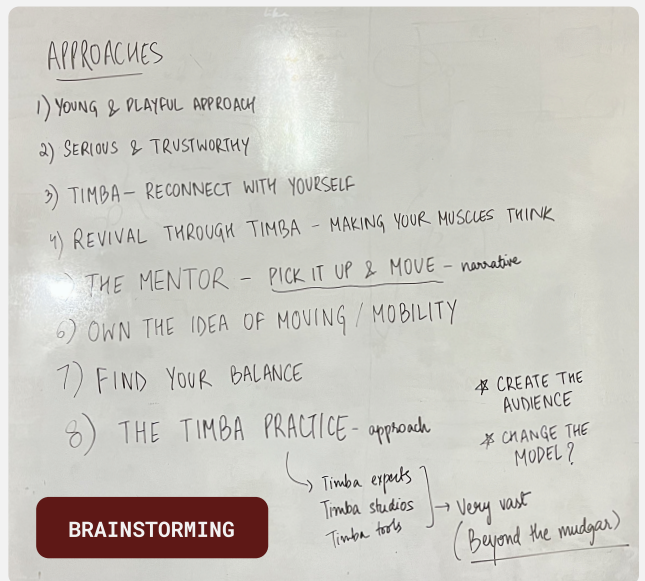 APPROACHES
1) YOUNG & PLAYFUL APPROACH
2) SERIOUS & TRUSTWORTHY
3) TIMBA – RECONNECT WITH YOURSELF
4) REVIVAL THROUGH TIMBA – MAKING YOUR MUSCLES THINK
) THE MENTOR – PICK IT UP & MOVE – narrative
6) OWN THE IDEA OF MOVING / MOBILITY
7) FIND YOUR BALANCE
8) THE TIMBA PRACTICE – approach
* CREATE THE
AUDIENCE
* CHANGE THE
MODEL?
Timba experts
Timba studios
Timba tools
→ Very vast
(Beyond the mudgar)
BRAINSTORMING